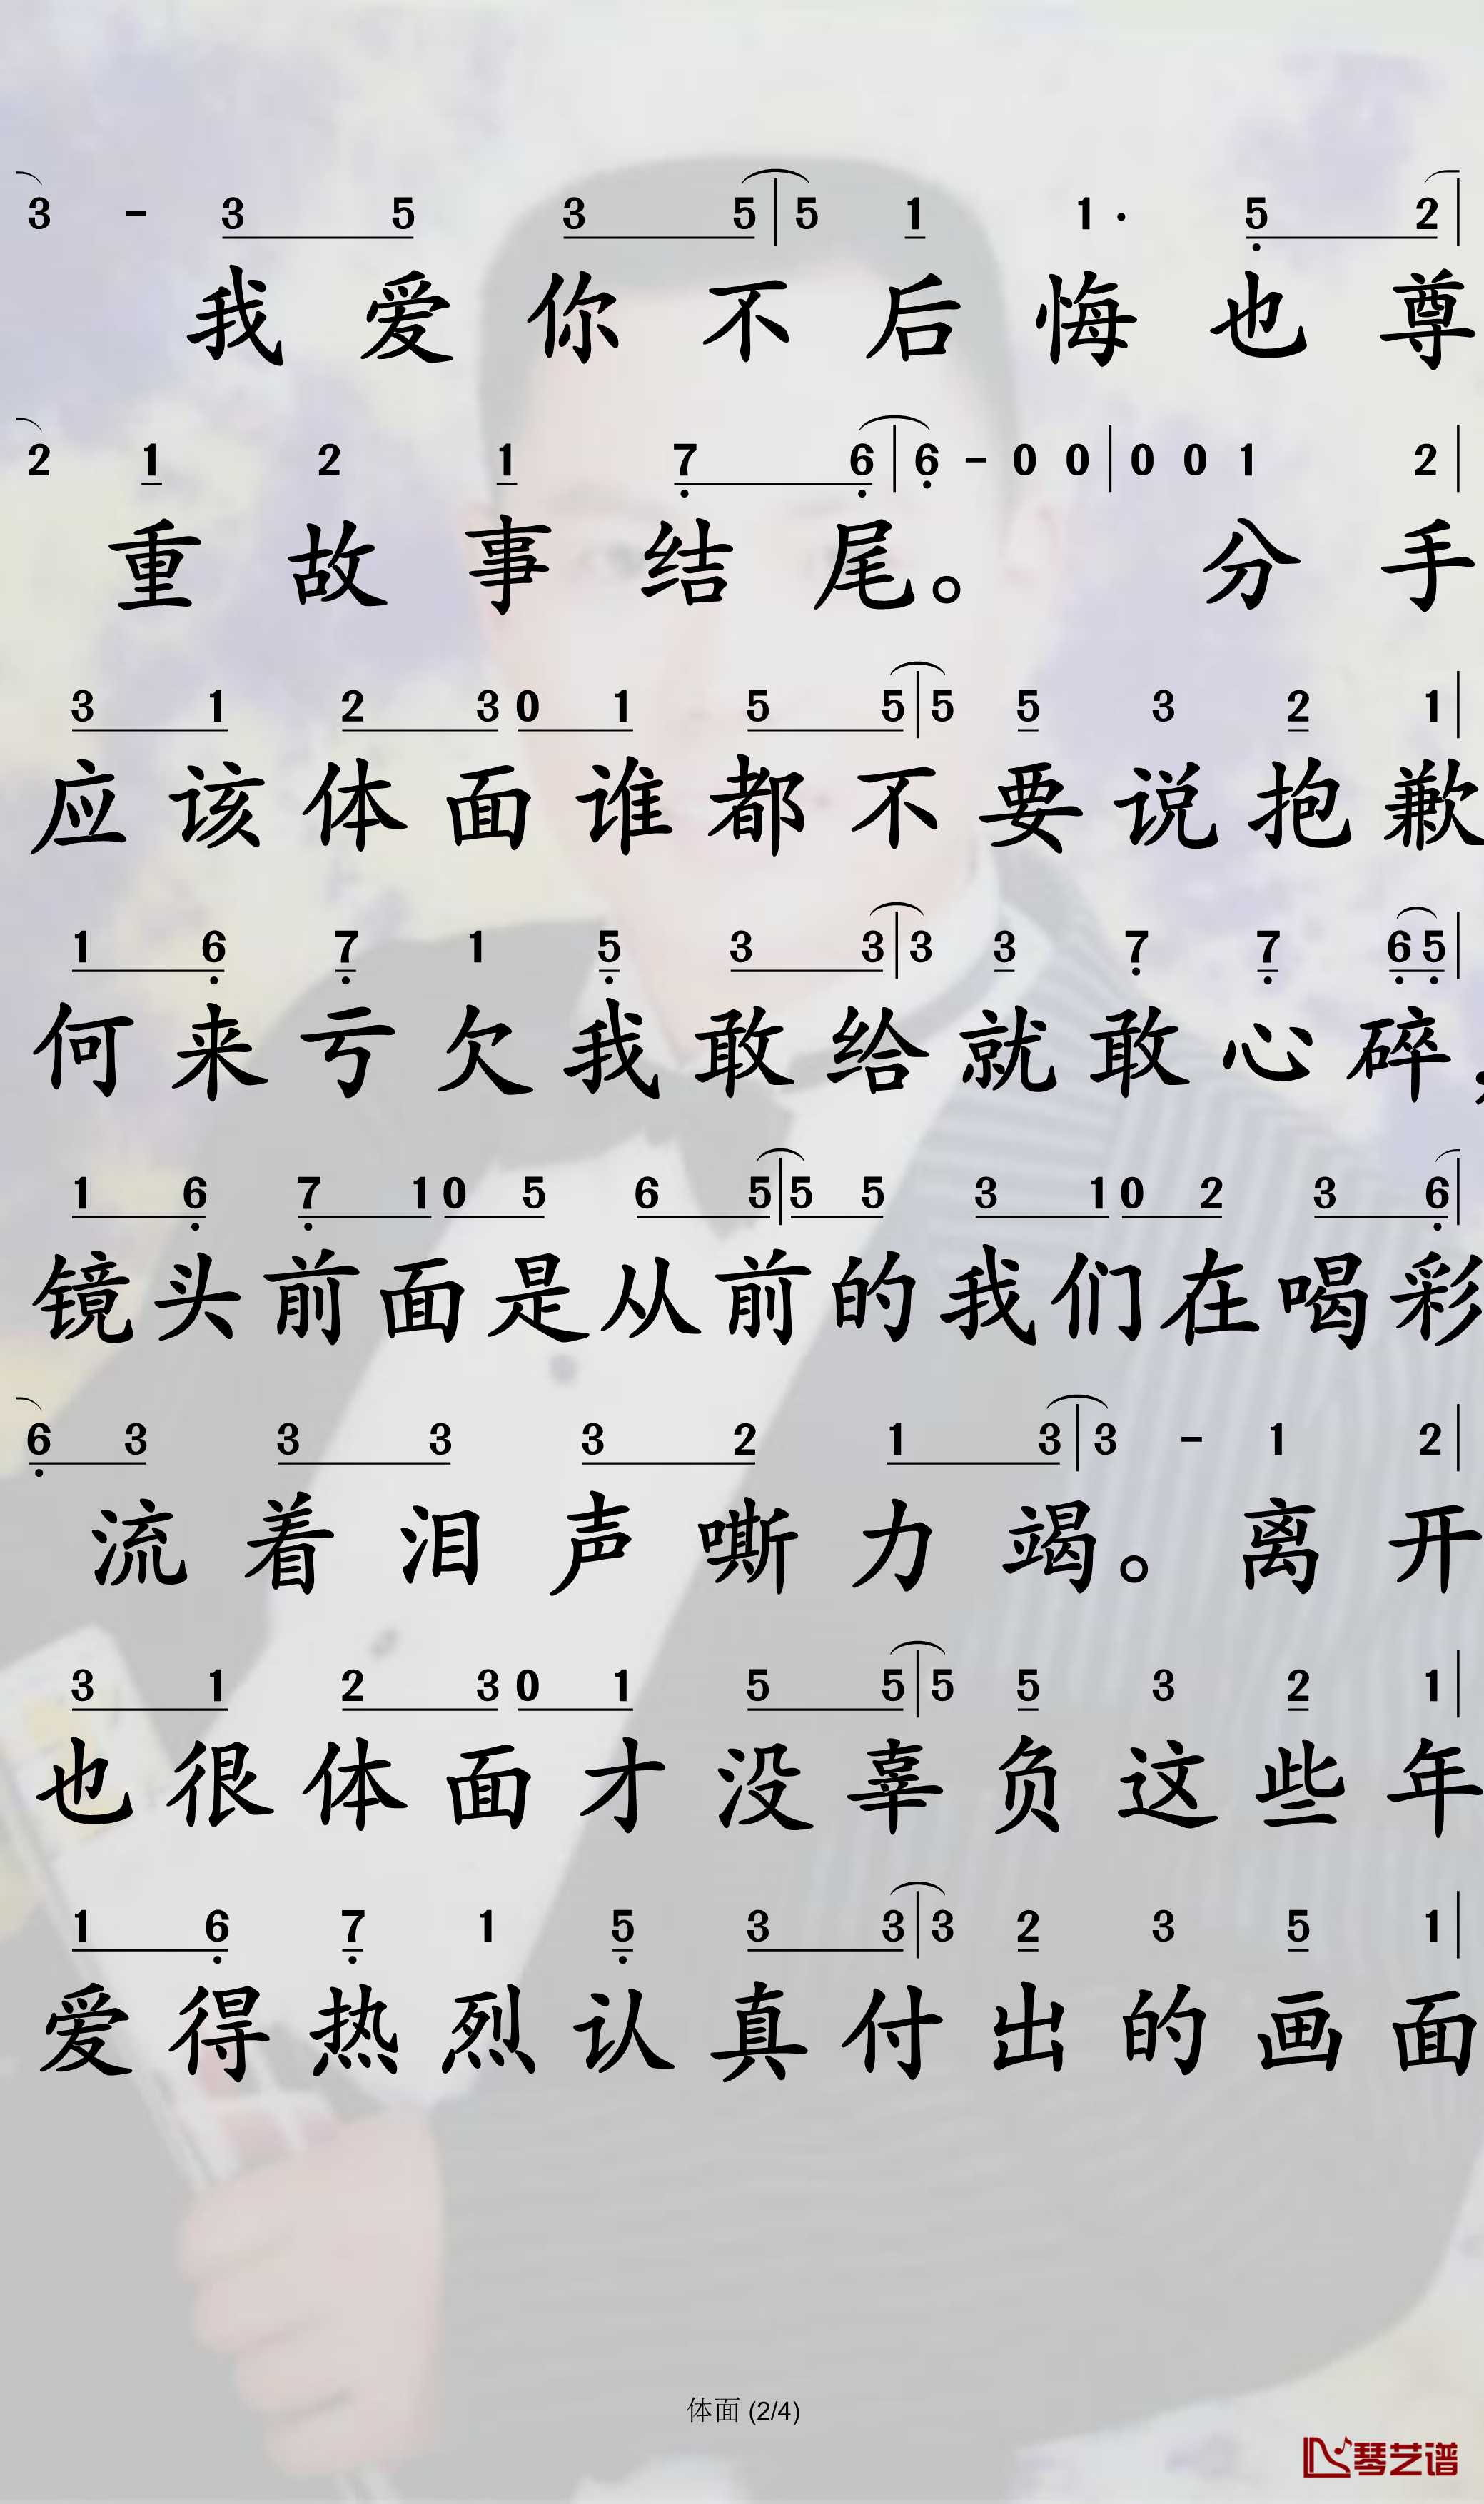 3 - 3 5 3 5 | 5 1 1 · 5 2 |
我爱你不后悔也尊
2 1 2 1 7 6 | 6 - 0 0 | 0 0 1 2 |
重故事结尾。 分手
3 1 2 3 0 1 5 5 | 5 5 3 2 1 |
应该体面谁都不要说抱歉
1 6 7 1 5 3 3 | 3 3 7 7 6 5 |
何来亏欠我敢给就敢心碎
1 6 7 1 0 5 6 5 | 5 5 3 1 0 2 3 6 |
镜头前面是从前的我们在喝彩
6 3 3 3 3 2 1 3 | 3 - 1 2 |
流着泪声嘶力竭。离开
3 1 2 3 0 1 5 5 | 5 5 3 2 1 |
也很体面才没辜负这些年
1 6 7 1 5 3 3 | 3 2 3 5 1 |
爱得热烈认真付出的画面
体面 (2/4)
琴艺谱